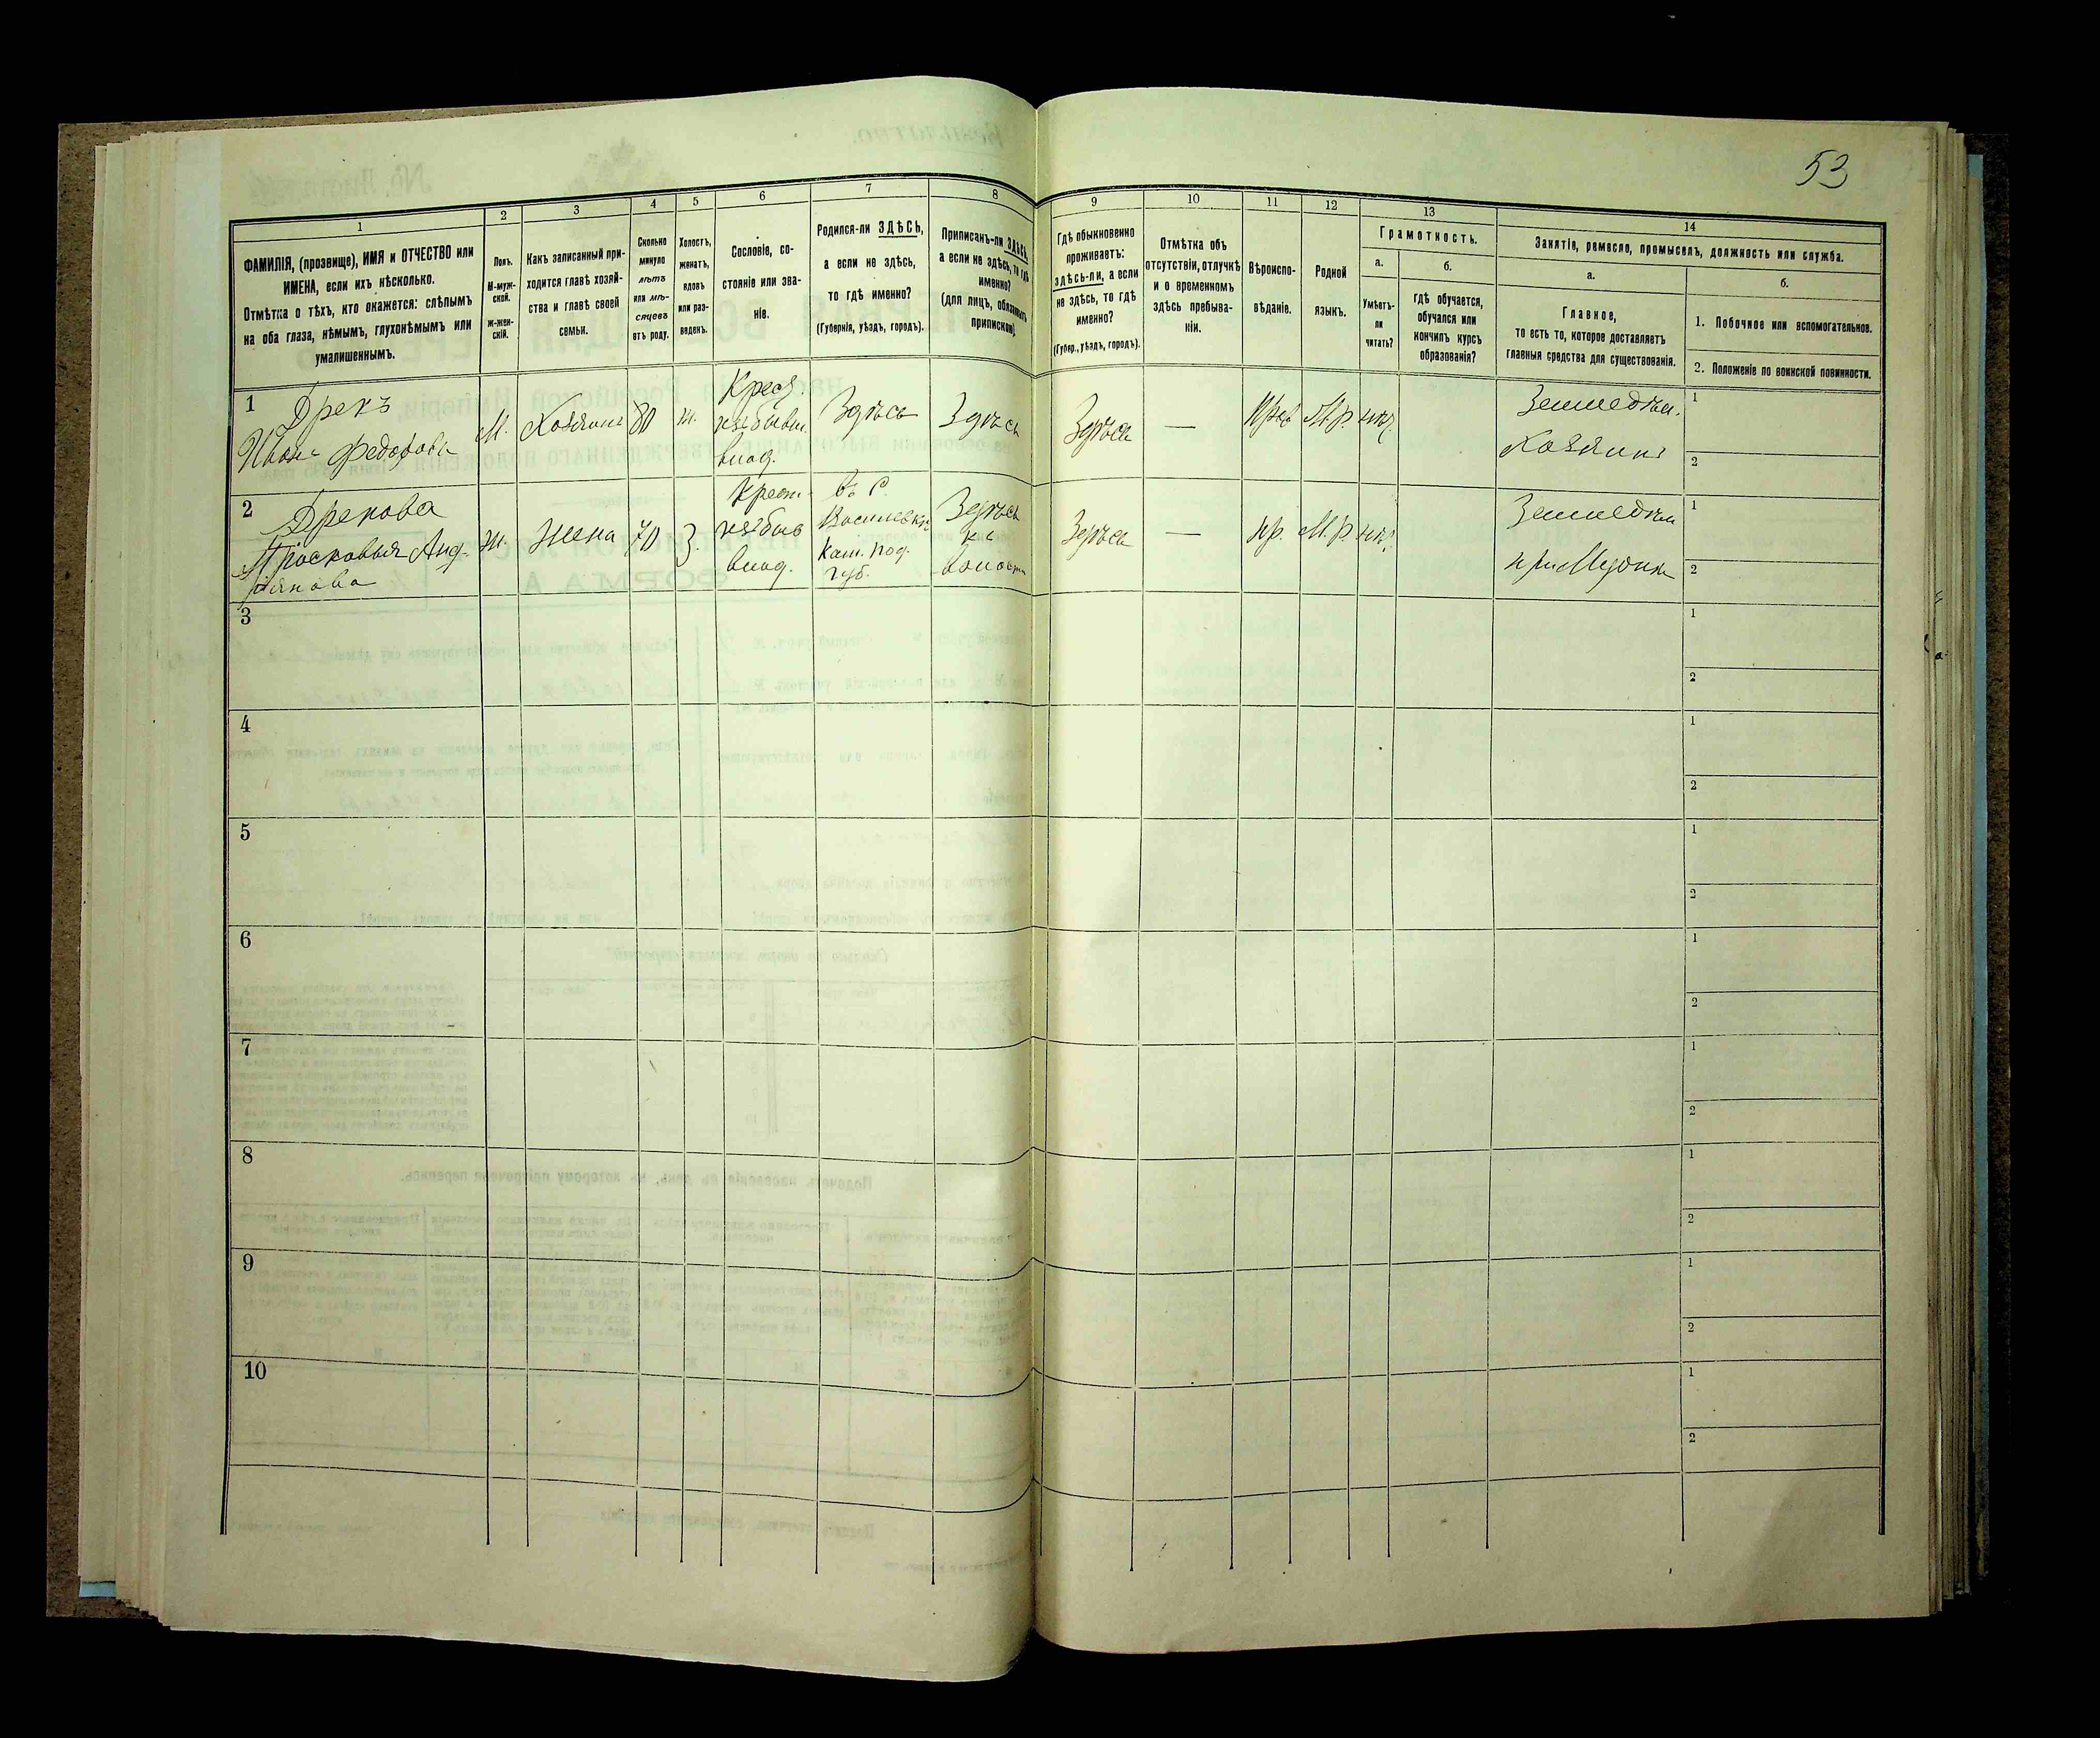 53
1
2
3
4
5
6
7
8
9
10
11
12
13
14
ФАМИЛІЯ, (прозвище), ИМЯ и ОТЧЕСТВО или
ИМЕНА, если ихъ нѣсколько.
Отмѣтка о тѣхъ, кто окажется: слѣпымъ
на оба глаза, нѣмымъ, глухонѣмымъ или
умалишеннымъ.
Полъ.
М-муж-
ской.
ж-жен-
скій.
Какъ записанный при-
ходится главѣ хозяй-
ства и главѣ своей
семьи.
Сколько
минуло
лѣтъ
или мѣ-
сяцевъ
отъ роду.
Холостъ,
женатъ,
вдовъ
или раз-
веденъ.
Сословіе, со-
стояніе или зва-
ніе.
Родился-ли ЗДѢСЬ,
а если не здѣсь,
то гдѣ именно?
(Губернія, уѣздъ, городъ).
Приписанъ-ли ЗДѢСЬ,
а если не здѣсь, то гдѣ
именно?
(для лицъ, обязанныхъ
припиской)
Гдѣ обыкновенно
проживаетъ:
здѣсь-ли, а если
не здѣсь, то гдѣ
именно?
(Губер., уѣздъ, городъ).
Отмѣтка объ
отсутствіи, отлучкѣ
и о временномъ
здѣсь пребыва-
ніи.
Вѣроиспо-
вѣданіе.
Родной
языкъ.
Грамотность.
а.
Умѣетъ-
ли
читать?
б.
гдѣ обучается,
обучался или
кончилъ курсъ
образованія?
Занятіе, ремесло, промыселъ, должность или служба.
а.
Главное,
то есть то, которое доставляетъ
главныя средства для существованія.
б.
1. Побочное или вспомогательное.
2. Положеніе по воинской повинности.
1
Дрекъ
Иванъ Федоровъ
М.
Хозяинъ
80
ж.
Крест.
изъ бывш.
влад.
Здѣсь
Здѣсь
Здѣсь
—
Прав
М.р.
нѣт
Земледѣл.
Хозяинъ
1
2
2
Дрекова
Просковья Анд-
ріянова
ж.
Жена
70
З.
Крест.
изъ быв
влад.
Въ с.
Василевкѣ
Кам. Под.
губ.
Здѣсь
къ
волости
Здѣсь
—
пр.
М.р
нѣт
Земледѣл
при Мужѣ
1
2
3
1
2
4
1
2
5
1
2
6
1
2
7
1
2
8
1
2
9
1
2
10
1
2